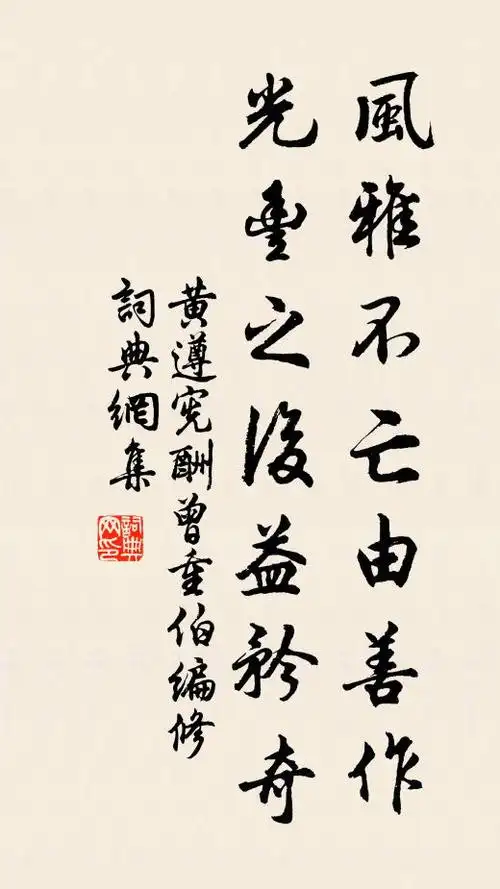 風雅不亡由善作
光豐之後益矜奇
黃遵宪酬曾重伯編修
詞典網集
詞典
网印